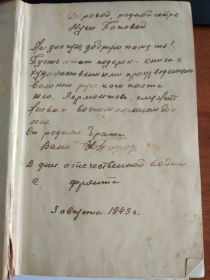 Дорогой, родной сестре
Мусе Поповой
На долгую добрую память!
Пусть этот подарок - книга с
художественными произведениями
великого русского поэта
М.Ю. Лермонтова, служит
воспоминанием обо
мне.
От родного брата
Вани
В дни отечественной войны
с фронта
3 августа 1943 г.